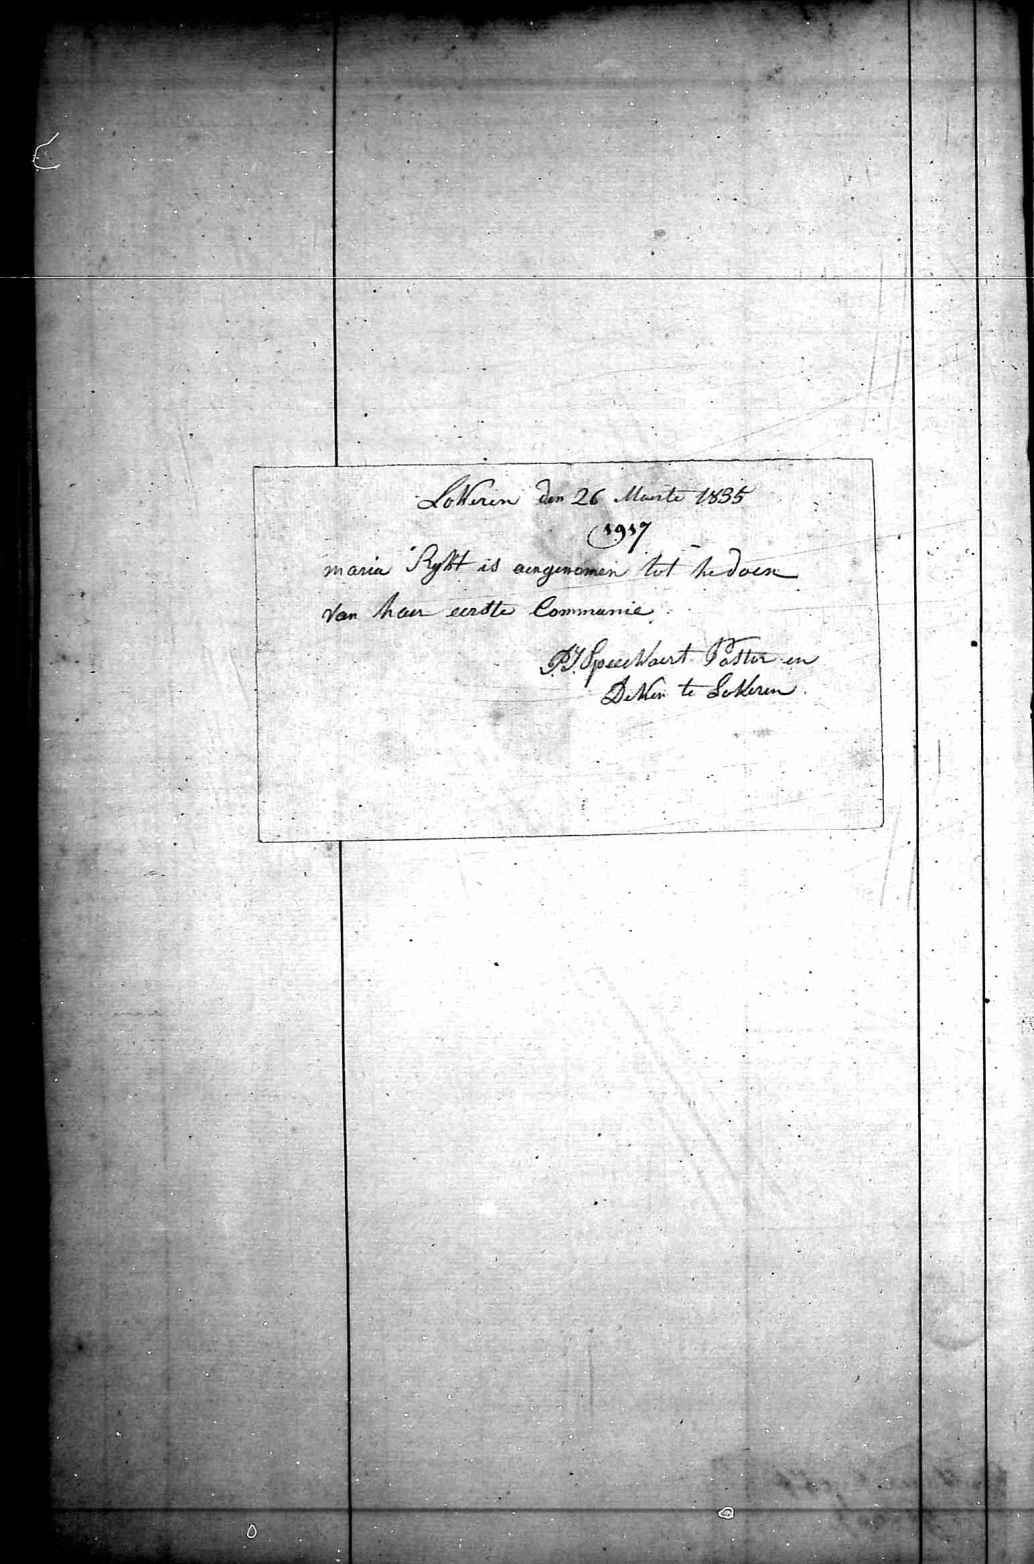 Lokeren den 26 Maerte 1835
1917
maria Rykt is aengenomen tot he doen
van haer eerste Communie.
P.J. Speeckaert Pastor en
Deken te Lokeren.